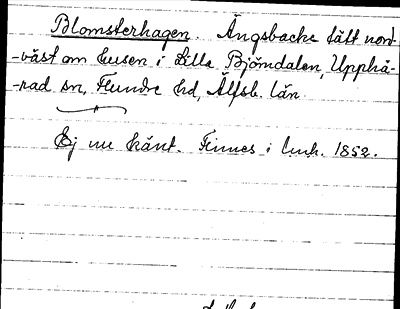 Blomsterhagen. Ängsbacke tätt nord-
-väst om husen i Lilla Björndalen, Upphä-
-rad sn, Flundre hd, Älfsb. län.
Ej nu känt. Finnes i l.m.h. 1852.